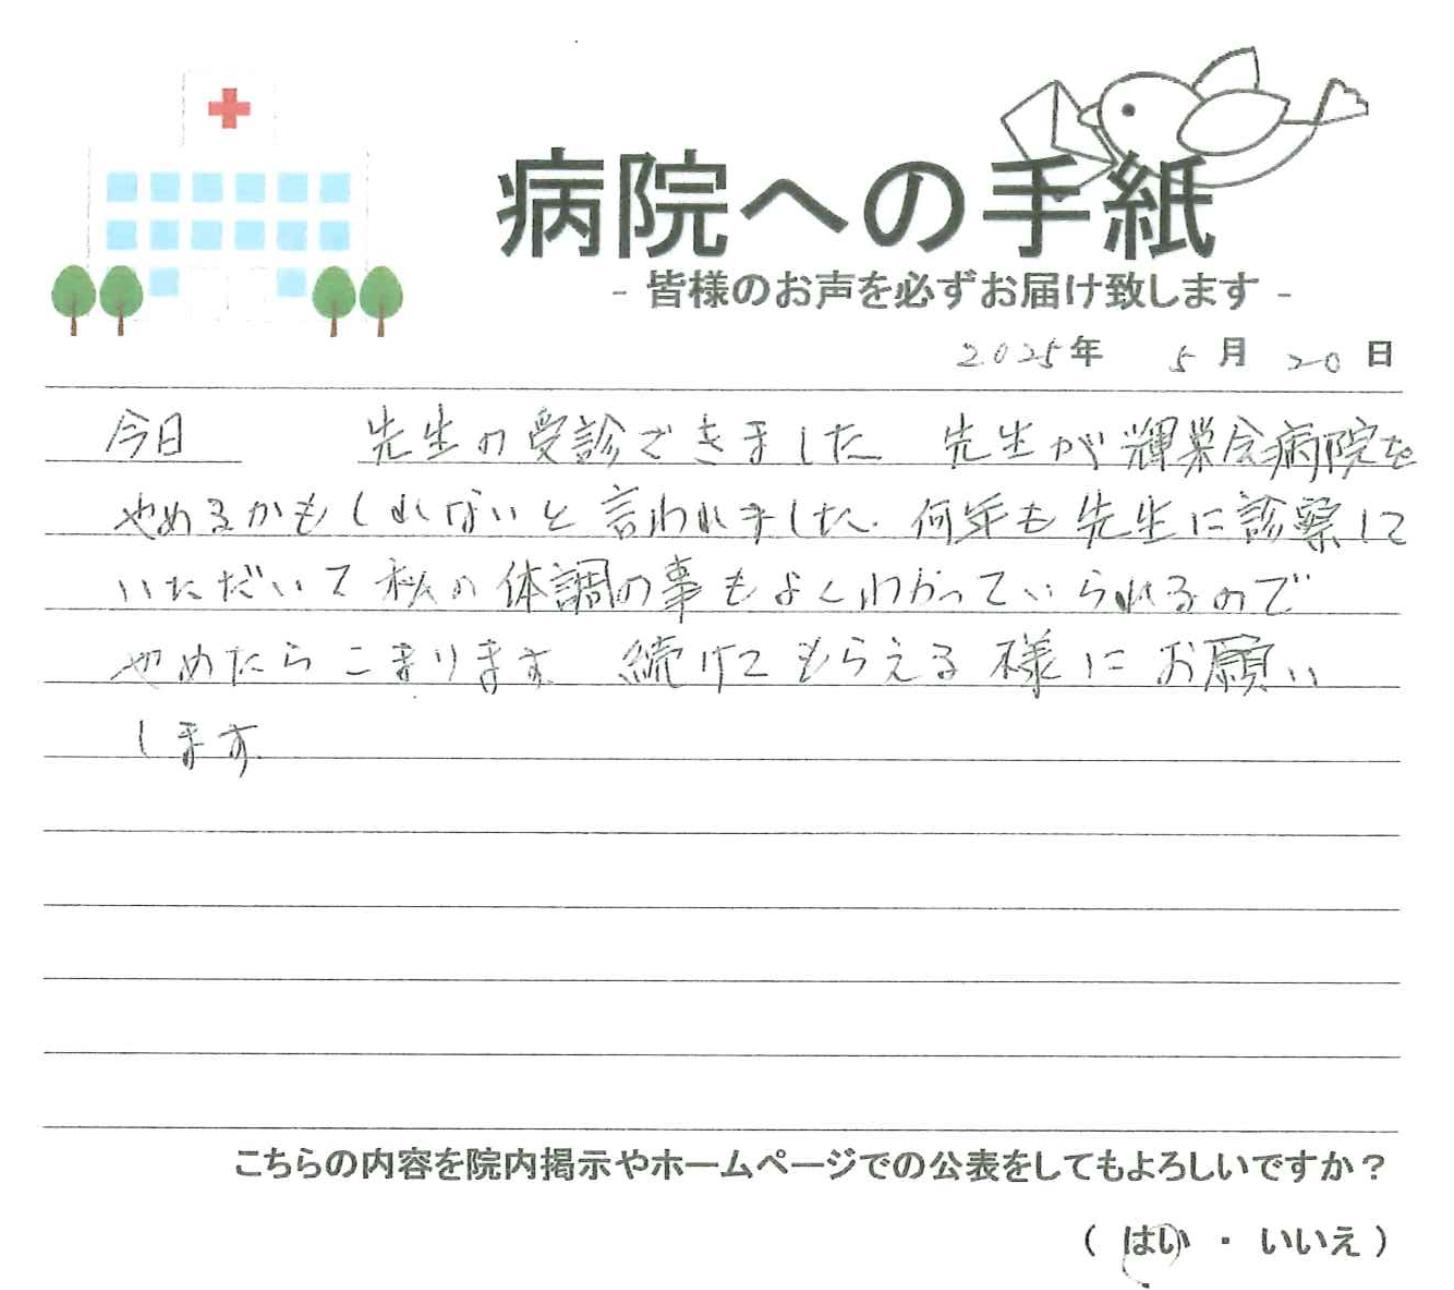 病院への手紙
- 皆様のお声を必ずお届け致します -
2025年 5月 20日
今日 先生の受診できました 先生が輝巣会病院を
やめるかもしれないと言われました. 何年も先生に診察して
いただいて私の体調の事もよくわかっていられるので
やめたらこまります 続けてもらえる様にお願い
します
こちらの内容を院内掲示やホームページでの公表をしてもよろしいですか?
( はい ・ いいえ )